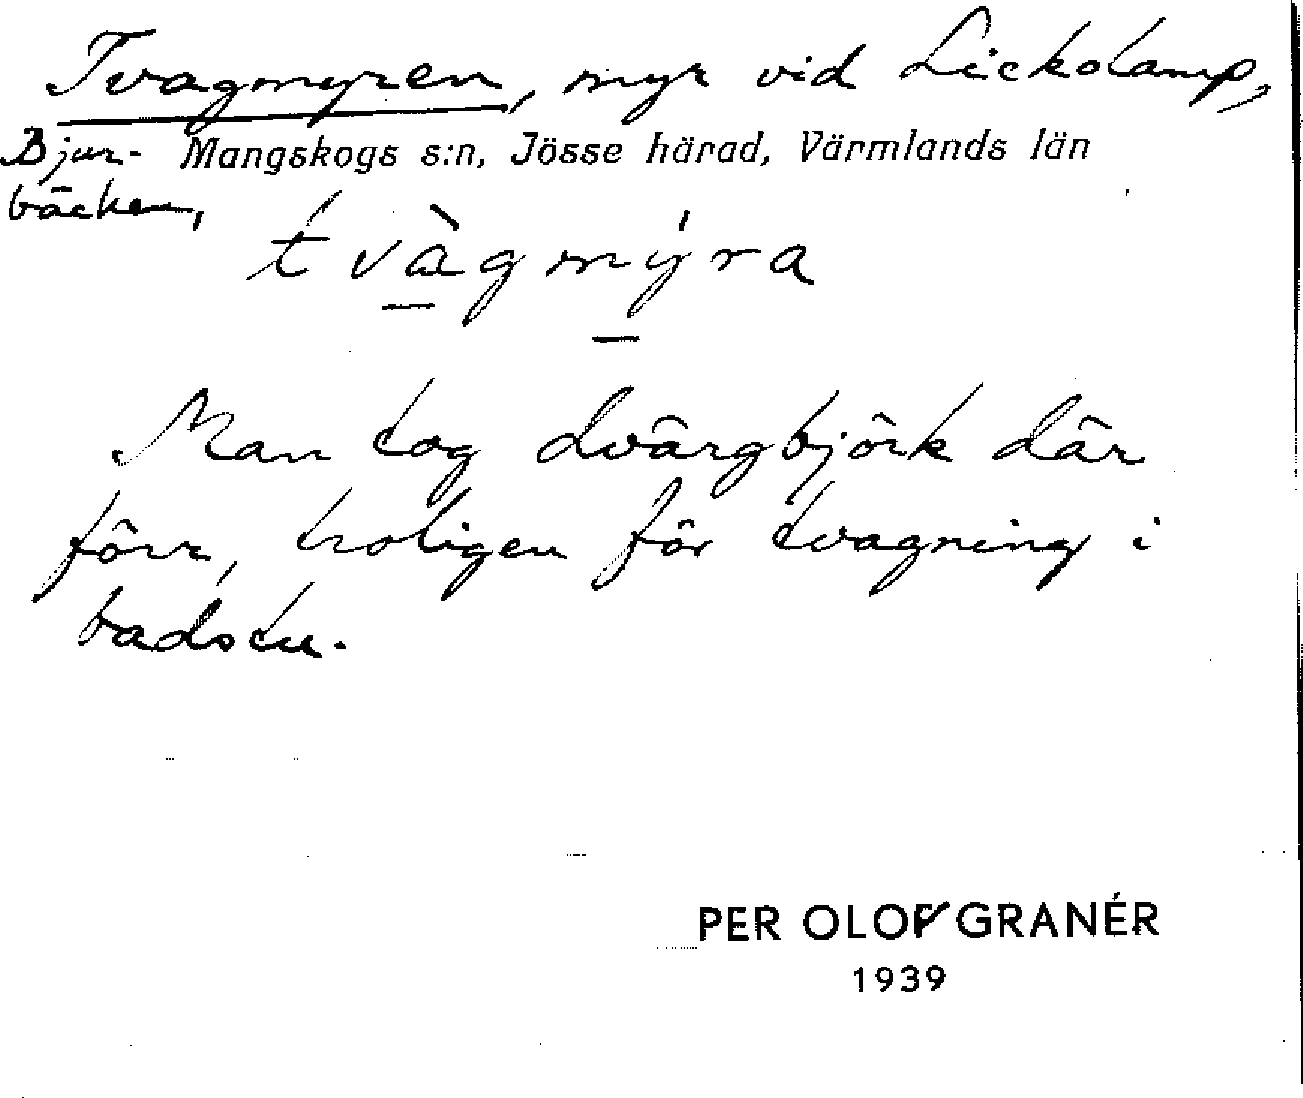 Tvagmyren, myr vid Lickolamp,
Bjur- Mangskogs s:n, Jösse härad, Värmlands län
bäcken,
tvàgmýra
Man tog dvärgbjörk där
förr, troligen för tvagning i
badstu.
PER OLOF GRANÉR
1939